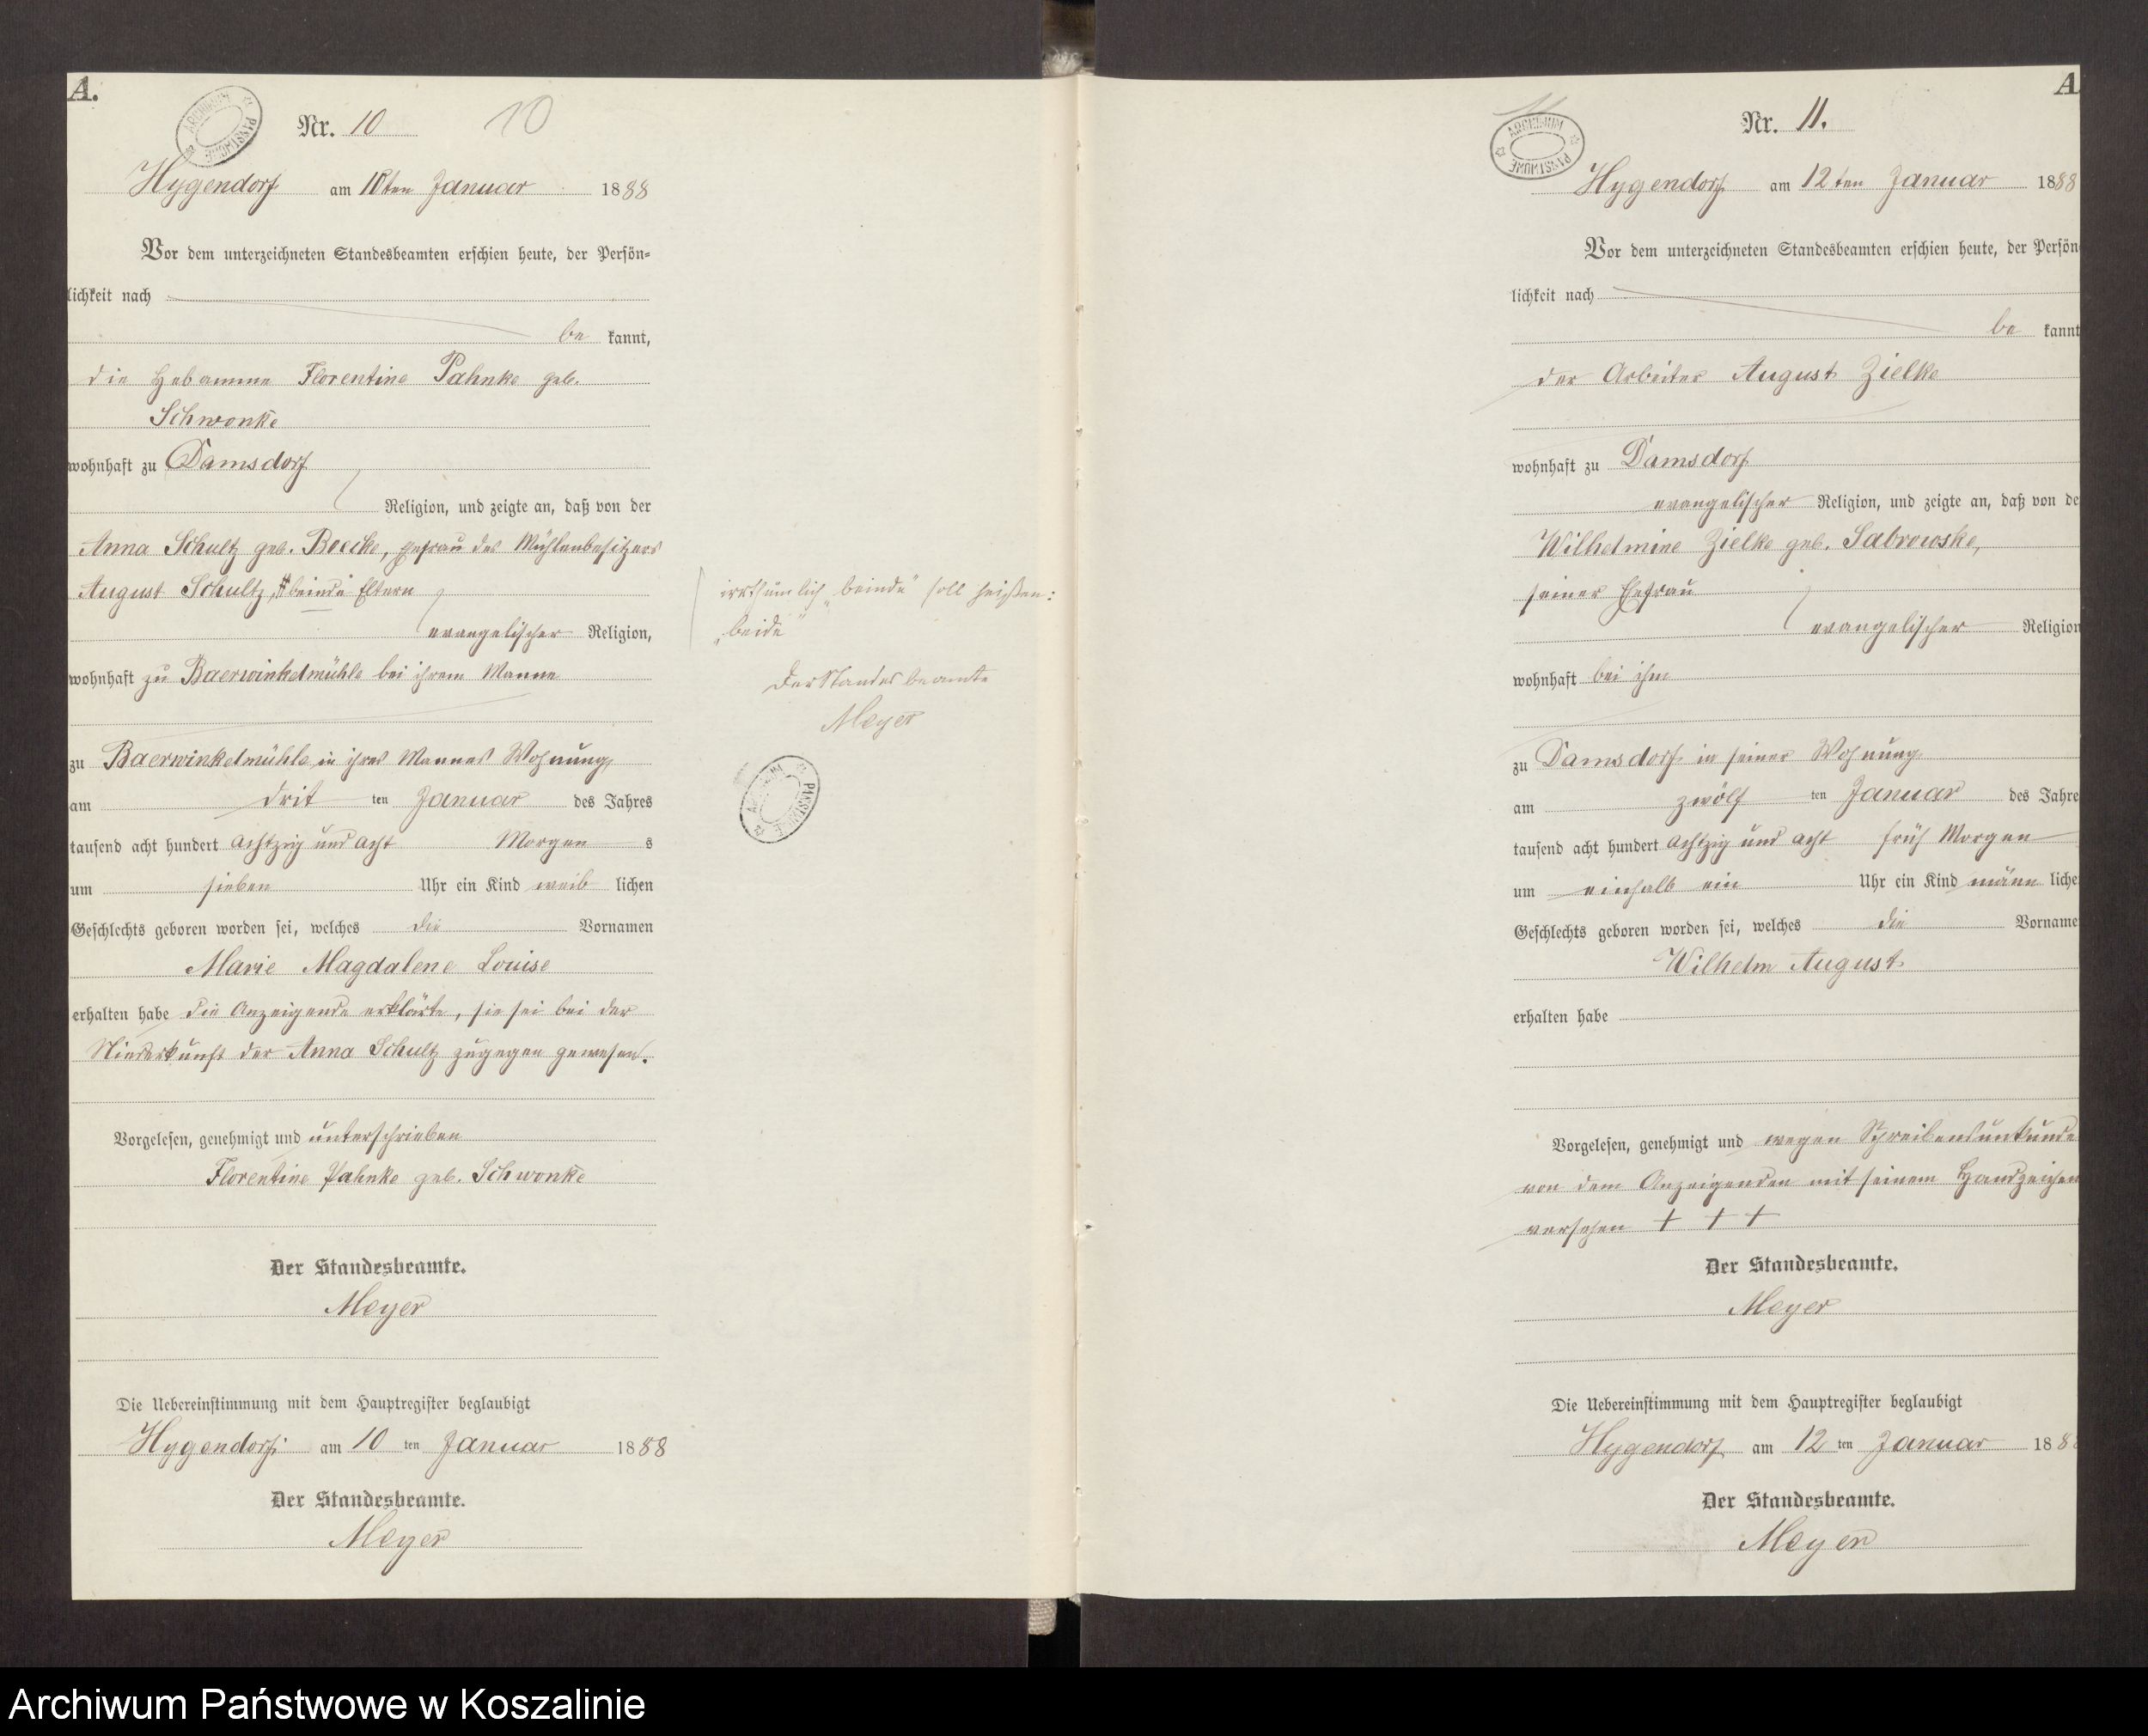 A.
Nr. 10
10
Hygendorf am 10ten Januar 1888
Vor dem unterzeichneten Standesbeamten erschien heute, der Persön-
lichkeit nach
be kannt,
die Hebamme Florentine Pahnke geb.
Schwonke
wohnhaft zu Damsdorf
Religion, und zeigte an, daß von der
Anna Schultz geb. Boecke, Ehefrau des Mühlenbesitzers
August Schultz, beinde Eltern
evangelischer Religion,
wohnhaft zu Baerwinkelmühle bei ihrem Manne
zu Baerwinkelmühle in ihres Mannes Wohnung
am drit ten Januar des Jahres
tausend acht hundert achtzig und acht Morgen s
um sieben Uhr ein Kind weib lichen
Geschlechts geboren worden sei, welches die Vornamen
Marie Magdalene Louise
erhalten habe die Anzeigende erklärte, sie sei bei der
Niederkunft der Anna Schultz zugegen gewesen.
Vorgelesen, genehmigt und unterschrieben
Florentine Pahnke geb. Schwonke
Der Standesbeamte.
Meyer
Die Uebereinstimmung mit dem Hauptregister beglaubigt
Hygendorf am 10 ten Januar 1888
Der Standesbeamte.
Meyer
irrthümlich „beinde" soll heißen:
„beide"
Der Standesbeamte
Meyer
ARCHIWUM PAŃSTWOWE
A
11
Nr. 11.
ARCHIWUM PAŃSTWOWE
Hygendorf am 12ten Januar 1888
Vor dem unterzeichneten Standesbeamten erschien heute, der Persön
lichkeit nach
be kannt
der Arbeiter August Zielke
wohnhaft zu Damsdorf
evangelischer Religion, und zeigte an, daß von de
Wilhelmine Zielke geb. Sabrowske,
seiner Ehefrau
evangelischer Religion
wohnhaft bei ihm
zu Damsdorf in seiner Wohnung
am zwölf ten Januar des Jahre
tausend acht hundert achtzig und acht früh Morgen
um einhalb ein Uhr ein Kind männ liche
Geschlechts geboren worden sei, welches die Vorname
Wilhelm August
erhalten habe
Vorgelesen, genehmigt und wegen Schreibensunkunde
von dem Anzeigenden mit seinem Handzeichen
versehen + + +
Der Standesbeamte.
Meyer
Die Uebereinstimmung mit dem Hauptregister beglaubigt
Hygendorf am 12 ten Januar 188
Der Standesbeamte.
Meyer
Archiwum Państwowe w Koszalinie